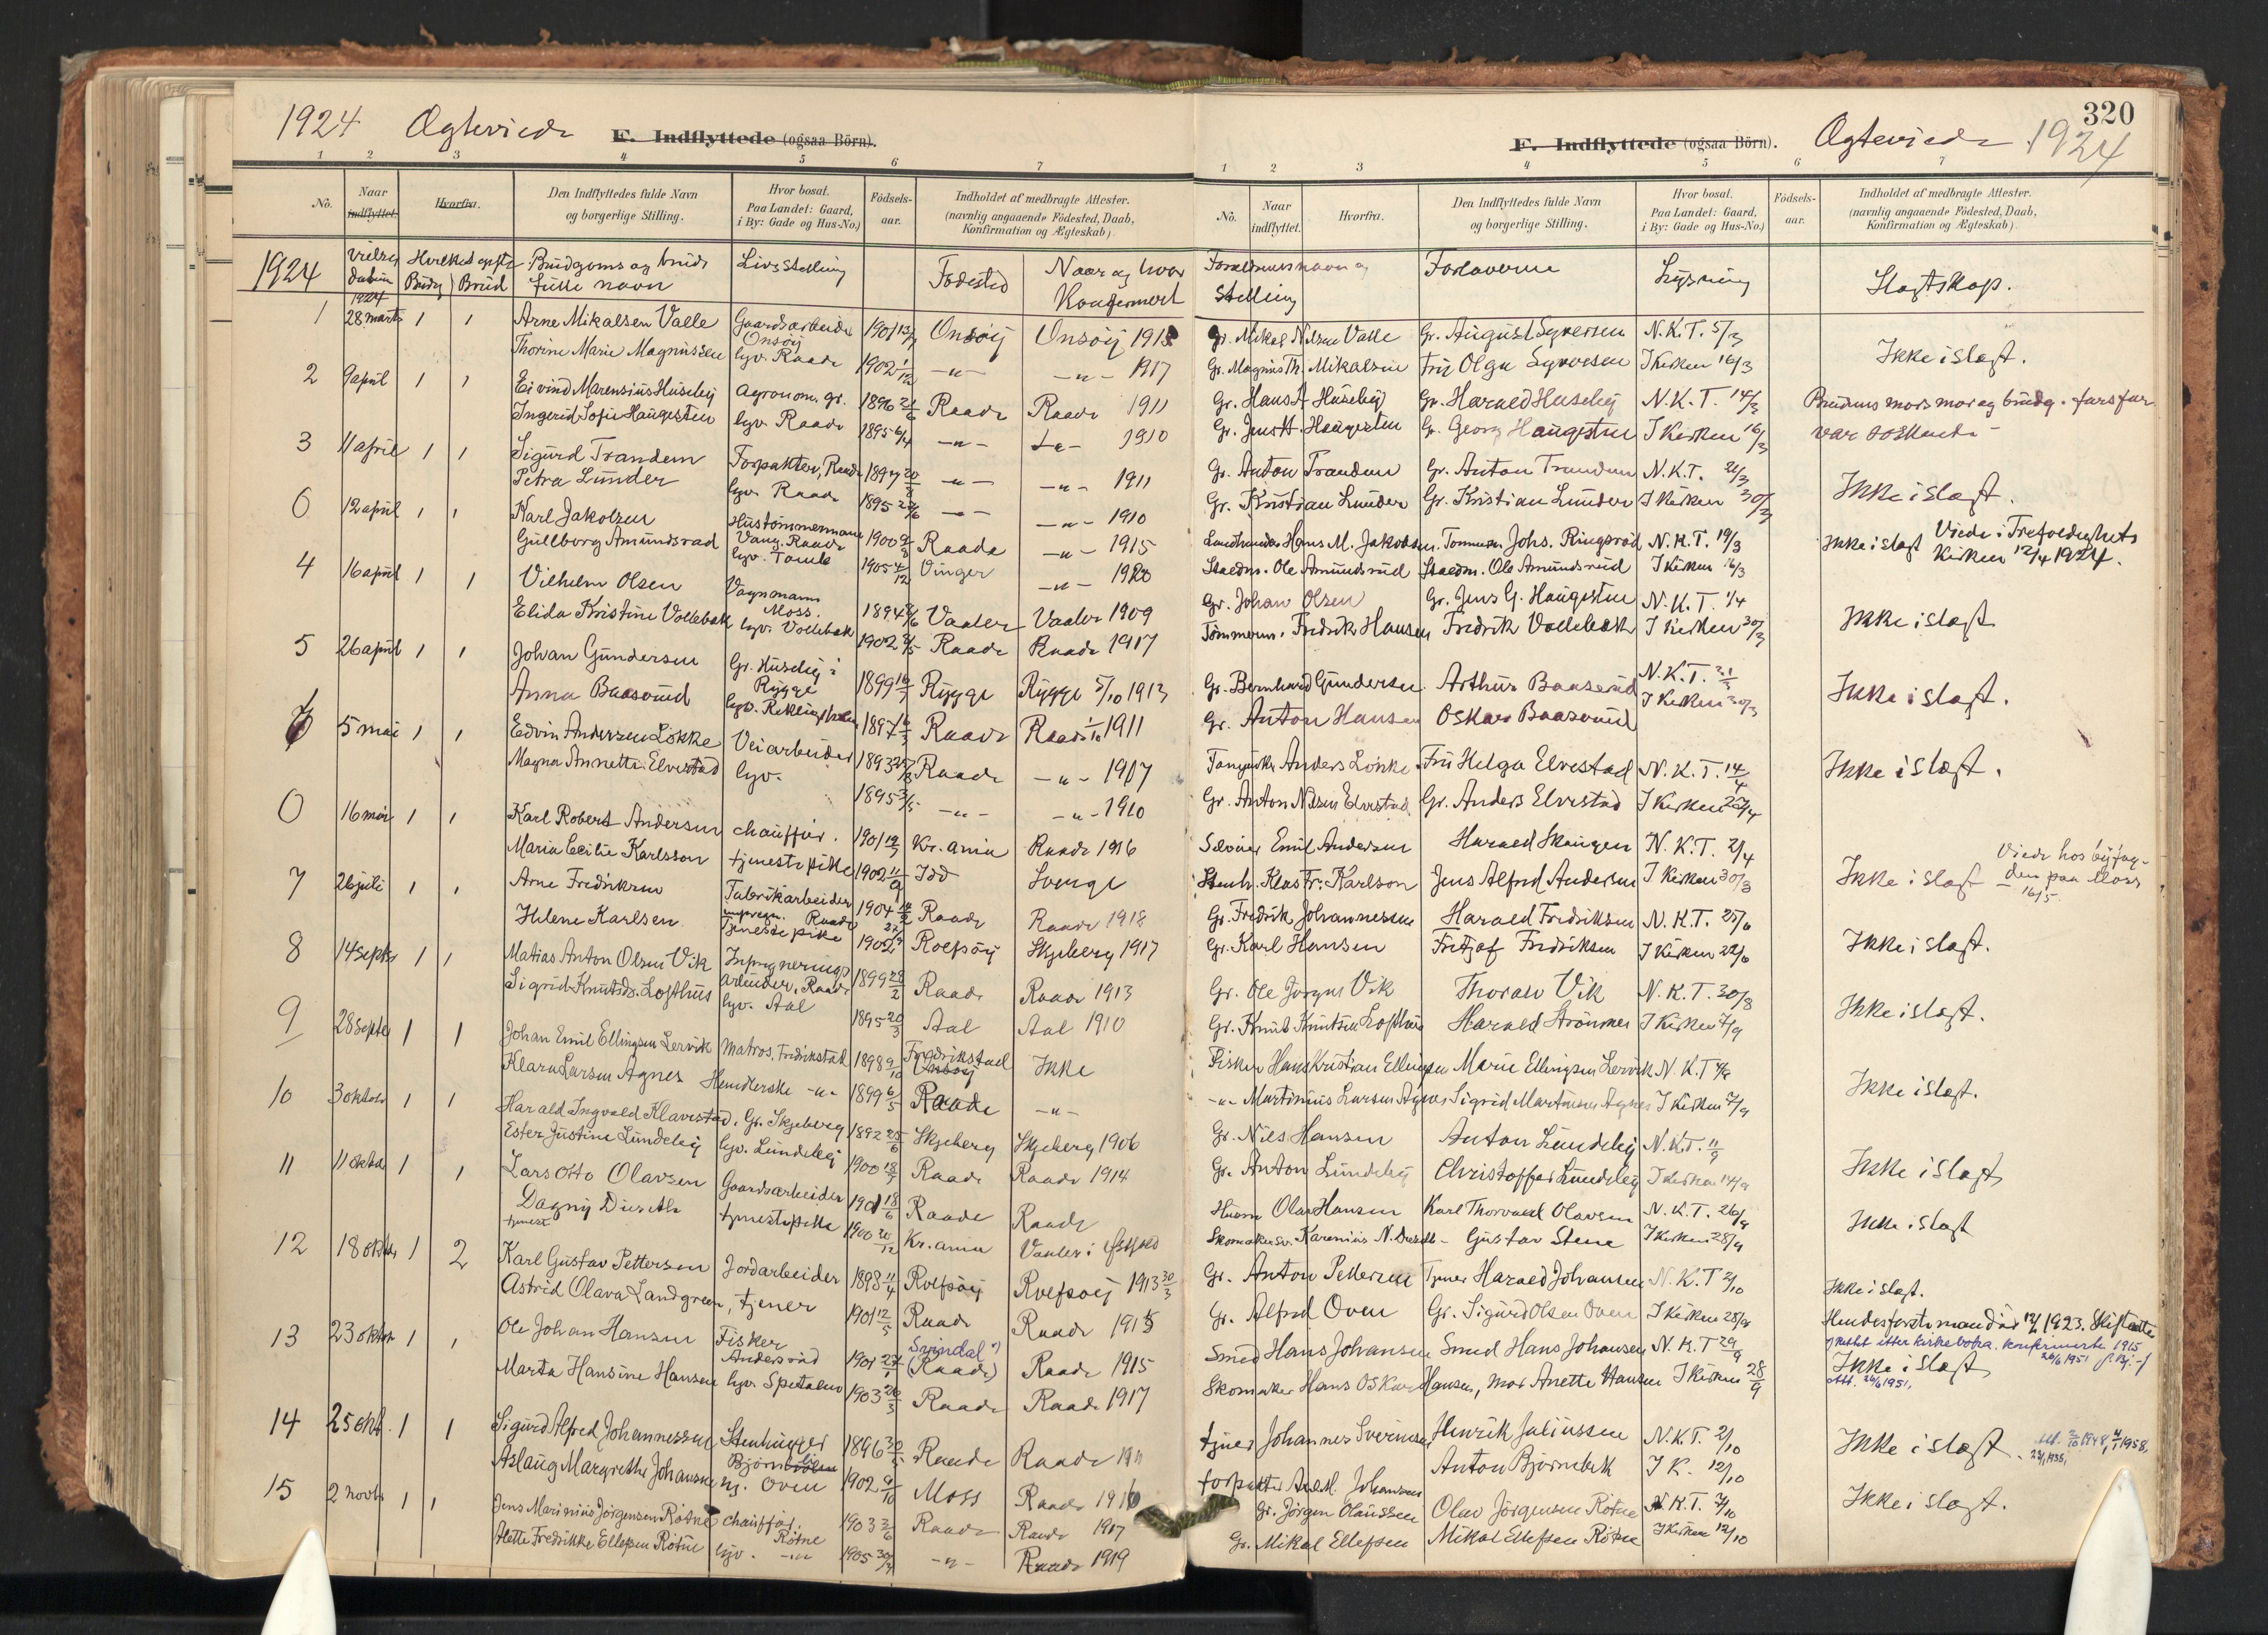 1924 Ægteviede F. Indflyttede (ogsaa Börn).
1 2 3 4 5 6 7
No. Naar indflyttet. Hvorfra. Den Indflyttedes fulde Navn og borgerlige Stilling. Hvor bosat. Paa Landet: Gaard, i By: Gade og Hus-No.) Födsels-aar. Indholdet af medbragte Attester. (navnlig angaaende Födested, Daab, Konfirmation og Ægteskab).
1924 Brudg Brud Brudgoms og bruds fulle navn Livsstelling Fødested Naar og hvor Konfirmert
1 28 marts 1 1 Arne Mikalsen Valle Gaardsarbeider Onsöy 1901 Onsöy Onsöy 1915
Thorine Marie Magnussen hjv. Raade 1902 1/12 -"- -"- 1917
2 9 april 1 1 Eivind Marensius Huseby agronom. gr. 1896 Raade Raade 1911
Ingerid Sofie Haugesten hjv. Raade 1895 6/4 -"- 1910
3 11 april 1 1 Sigurd Trandem Forpakter, Raade 1897 -"- -"- 1911
Petra Lunder hjv. Raade 1895 -"- -"- 1910
0 12 april 1 1 Karl Jakobsen Hustömmermann Vang. Raade 1900 Raade -"- 1915
Gullborg Amundsrød hjv. Tomb 1905 4/12 Vinger -"- 1920
4 16 april 1 1 Vilhelm Olsen Vognmann Moss. 1894 Vaaler Vaaler 1909
Elida Kristine Vollebæk hjv. Vollebæk 1902 Raade Raade 1917
5 26 april 1 1 Johan Gundersen Gr. Huseby i Rygge 1899 Rygge Rygge 5/10 1913
Anna Baaserud 1897 Raade Raade 1911
6 5 mai 1 1 Edvin Andersen Løkke Veiarbeider 1893 Raade -"- 1907
Magna Annette Elvestad hjv. 1895 3/5 -"- -"- 1910
0 16 mai 1 1 Karl Robert Andersen chauffør. 1901 Kr.ania Raade 1916
Maria Cecilie Karlsson tjenestepike 1902 11/9 Idd Sverige
7 26 juli 1 1 Arne Fredriksen Fabrikarbeider Raade 1904 Raade Raade 1918
Helene Karlsen Tjenestepike 1902 Rolfsøy Skjeberg 1917
8 14 septbr 1 1 Matias Anton Olsen Vik Impregnerings arbeider, Raade 1899 28/2 Raade Raade 1913
Sigrid Knutsd. Lofthus hjv. Aal 1895 20/3 Aal Aal 1910
9 28 septbr 1 1 Johan Emil Ellingsen Lervik Matros, Fredrikstad 1898 9/10 Fredrikstad Onsøy Ikke
Klara Larsen Agnes Handlerske -"- 1899 6/5 Raade -"-
10 3 oktober 1 1 Harald Ingvald Klavestad, Gr. Skjeberg 1892 25/6 Skjeberg Skjeberg 1906
Ester Justine Lundeby hjv. Lundeby 1900 Raade Raade 1914
11 11 oktbr 1 1 Lars Otto Olavsen Gaardsarbeider 1901 18/6 Raade Raade
Dagny Dieseth tjenestepike 1900 Kr.ania Vaaler i Østfold
12 18 oktbr 1 2 Karl Gustav Pettersen Jordarbeider 1898 11/4 Rolfsøy Rolfsøy 1913 30/3
Astrid Olava Landgren, tjener 1901 12/5 Raade Raade 1915
13 23 oktbr 1 1 Ole Johan Hansen Fisker Andersrød 1901 Svindal (Raade) Raade 1915
Marta Hansine Hansen hjv. Spetalen 1903 20/3 Raade Raade 1917
14 25 okt. 1 1 Sigurd Alfred Johannessen Stenhugger 1896 Raade Raade 1911
Aslaug Margrethe Johansen hj. Oven 1902 Moss Raade 1916
15 2 novbr 1 1 Jens Marinius Jörgensen Rötne chauffør. Rötne 1903 Raade Raade 1917
Alette Fredrikke Ellefsen Rötne hjv. -"- 1905 -"- Raade 1919
320
F. Indflyttede (ogsaa Börn). Ægteviede 1924
1 2 3 4 5 6 7
No. Naar indflyttet. Hvorfra. Den Indflyttedes fulde Navn og borgerlige Stilling. Hvor bosat. Paa Landet: Gaard, i By: Gade og Hus-No.) Födsels-aar. Indholdet af medbragte Attester. (navnlig angaaende Födested, Daab, Konfirmation og Ægteskab).
Forældrenes navn og Stelling Forloverne Lysning Slagtskap.
Gr. Mikal Nilsen Valle Gr. August Syversen N.K.T. 5/3
Gr. Magnus Th. Mikalsen Fru Olga Syversen I Kirken 16/3 Ikke i slagt.
Gr. Hans A Huseby Gr. Harald Huseby N.K.T. 14/3 Brudens mors mor og brudg. fars far
Gr. Jens H. Haugesten Gr. Georg Haugesten I Kirken 16/3 var søskende
Gr. Anton Trandem Gr. Anton Trandem N.K.T. 21/3
Gr. Kristian Lunder Gr. Kristian Lunder I Kirken 30/3 Ikke i slagt.
Hans M. Jakobsen. Tømmerm. Johs. Ringsrød N.K.T. 19/3 Ikke i slagt Viede i Trefoldighets
Ole Amundsrud Ole Amundsrud I Kirken 16/3 Kirken 12/4 1924.
Gr. Johan Olsen Gr. Jens G. Haugesten N.K.T. 1/4
Tømmerm. Fredrik Hansen Fredrik Vollebæk I Kirken 30/3 Ikke i slagt
Gr. Bernhard Gundersen Arthur Baaserud N.K.T. 21/3
Gr. Anton Hansen Oskar Baaserud I Kirken 30/3 Ikke i slagt.
Anders Løkke Fru Helga Elvestad N.K.T. 14/4 Ikke i slagt.
Gr. Anton Nilsen Elvestad Gr. Anders Elvestad I Kirken 27/4
Emil Andersen Harald Skaugen N.K.T. 2/4 Viede hos byfog-
Stenh. Klas Fr. Karlson Jens Alfred Andersen I Kirken 30/3 Ikke i slagt den paa Moss 16/5.
Gr. Fredrik Johannessen Harald Fredriksen N.K.T. 25/6
Gr. Karl Hansen Fritjof Fredriksen I Kirken 22/6 Ikke i slagt.
Gr. Ole Jörgen Vik Thoralv Vik N.K.T. 30/8
Gr. Knut Knutsen Lofthus Harald Strømnes I Kirken 7/9 Ikke i slagt.
Fisker Hans Kristian Ellingsen Marie Ellingsen Lervik N.K.T
-"- Martinius Larsen Agnes Sigrid Martinsen Agnes I Kirken 7/9 Ikke i slagt.
Gr. Nils Hansen Anton Lundeby N.K.T. 11/9
Gr. Anton Lundeby Christoffer Lundeby I Kirken 14/9 Ikke i slagt
Husm Olav Hansen Karl Thorvald Olavsen N.K.T. 26/9
Skomakersv. Karenius N. Dieseth Gustav Stene I Kirken 28/9 Ikke i slagt
Gr. Anton Pettersen Tjener Harald Johansen N.K.T 2/10 Ikke i slagt.
Gr. Alfred Oven Gr. Sigurd Olsen Oven I Kirken 28/9 Hendes forste mand død 1923. Skifteatte
Smed Hans Johansen Smed Hans Johansen N.K.T 29/9 rettet etter kirkeboka. konfirmerte 1915
Skomaker Hans Oskar Hansen, mor Anette Hansen I Kirken 28/9 Ikke i slagt 26/6 1951
Att. 26/6 1951.
tjener Johannes Syvertsen Henrik Juliussen N.K.T. 2/10 Ikke i slagt
forpakter Johansen Anton Bjørnebek I K. 12/10
Gr. Jörgen Olaussen Olav Jörgensen Rötne N.K.T. 7/10 Ikke i slagt.
Gr. Mikal Ellefsen Mikal Ellefsen Rötne I Kirken 12/10